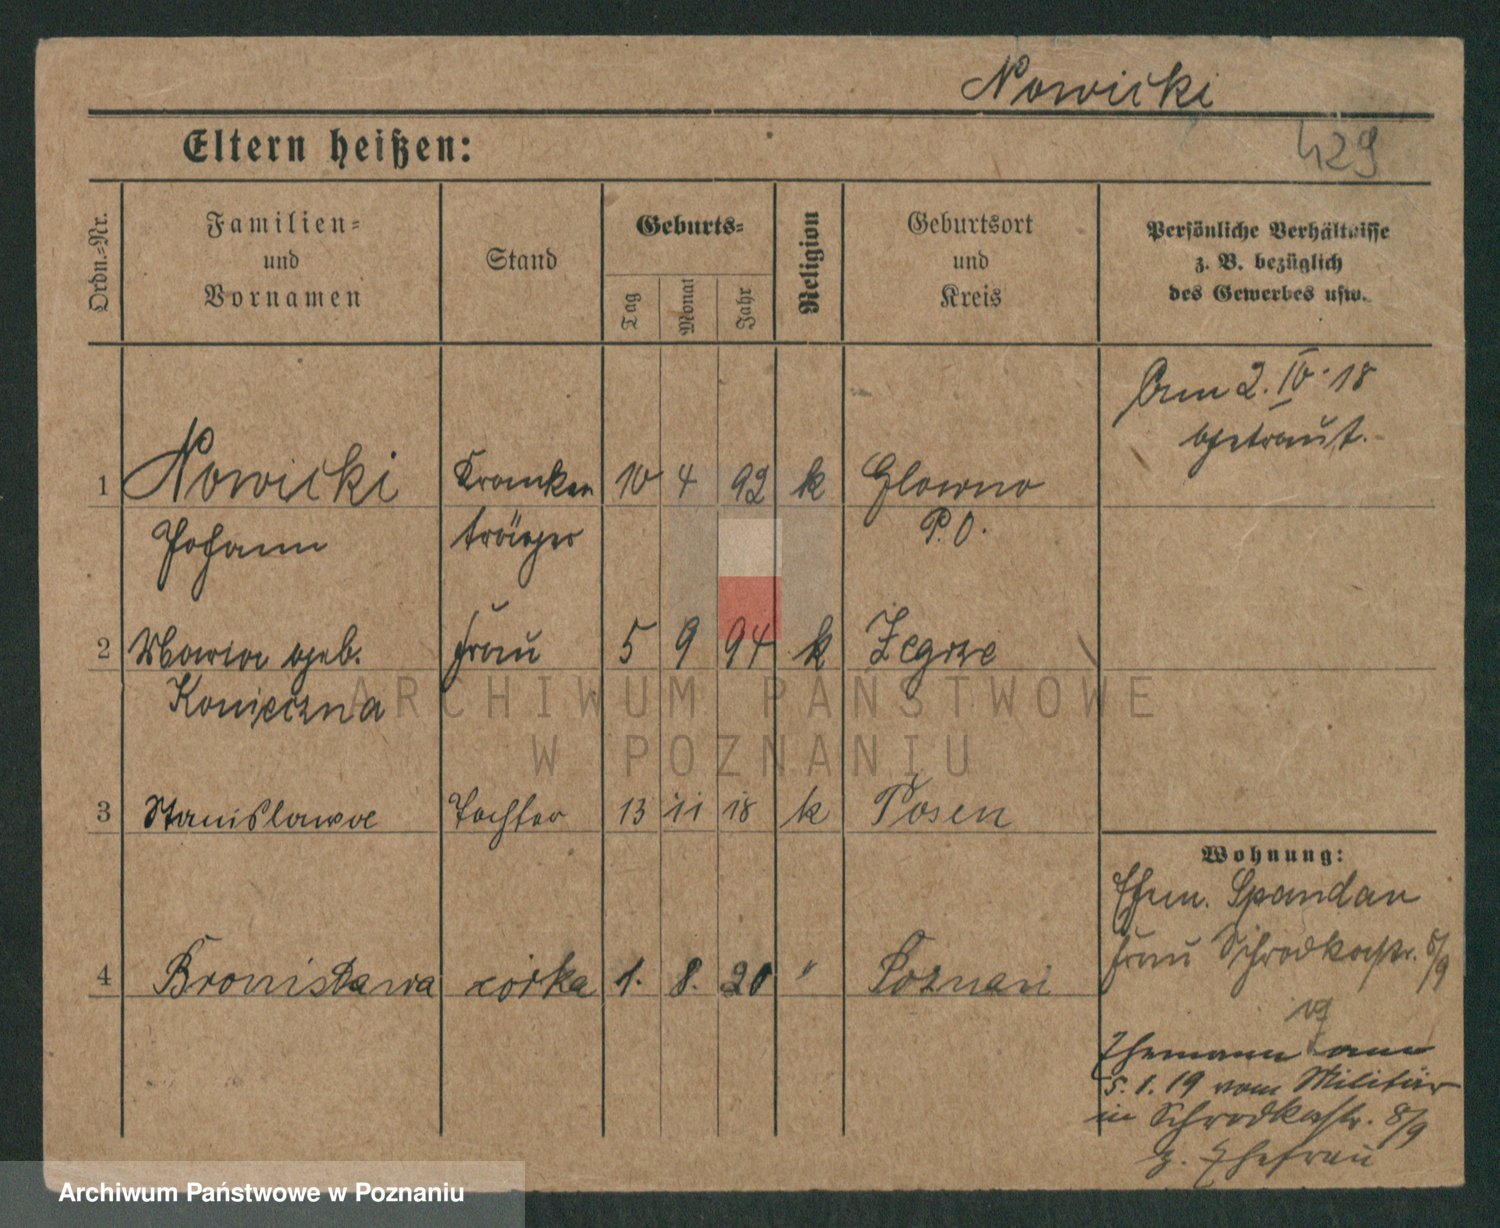 Nowicki
429
Eltern heißen:
Ordn.-Nr.
Familien-
und
Vornamen
Stand
Geburts-
Tag
Monat
Jahr
Religion
Geburtsort
und
Kreis
Persönliche Verhältnisse
z. B. bezüglich
des Gewerbes usw.
Am 2. IV. 18
getraut.
1 Nowicki Kranken 10 4 92 k Glowno
Johann träger P. O.
2 Maria geb. Frau 5 9 94 k Zegrze
Konieczna
3 Stanislawa Tochter 13 11 18 k Posen
Wohnung:
Ehem. Spandau
Frau Schrodkastr. 8/9
4 Bronisława córka 1. 8. 20 " Poznań
Ehemann am
5. 1. 19 vom Militär
in Schrodkastr. 8/9
z. Ehefrau
ARCHIWUM PAŃSTWOWE
W POZNANIU
Archiwum Państwowe w Poznaniu